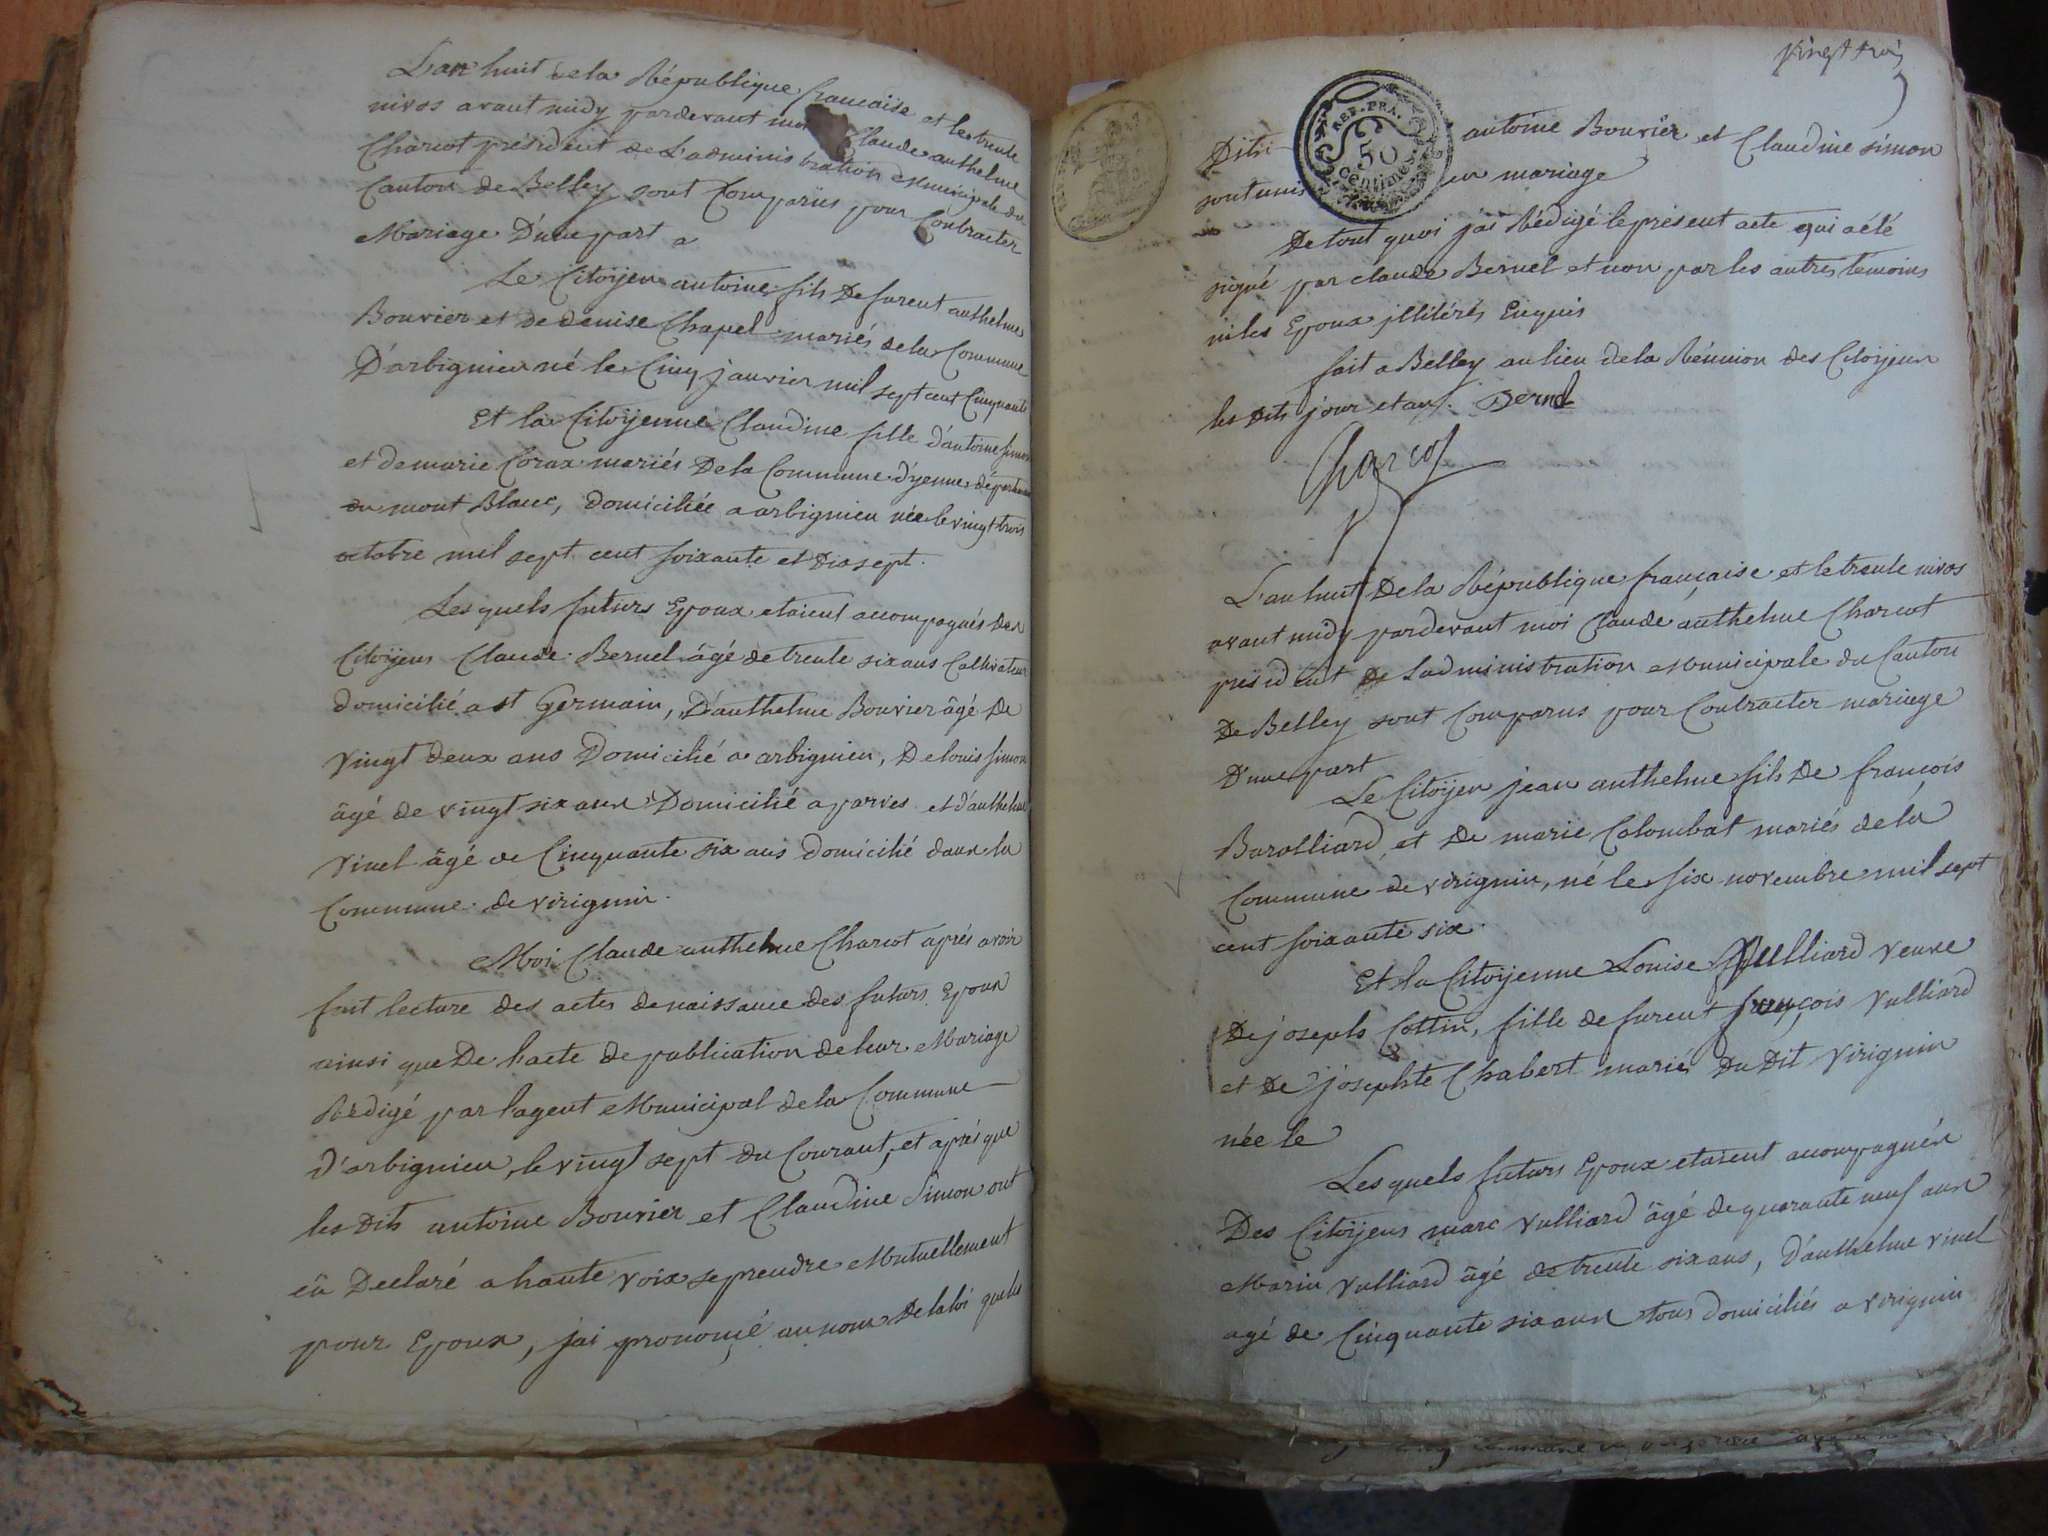 L'an huit de la République francaise et le trente
nivos avant midy pardevant moi Claude anthelme
Charcot président de L'administration Municipale du
Canton de Belley sont Comparus pour Contracter
Mariage D'une part a
Le Citoyen antoine fils De furent anthelme
Bouvier et de denise Chapel mariés de la Commune
D'arbignieu né le Cinq janvier mil sept cent Cinquante
Et la Citoyenne Claudine fille d'antoine simon
et de marie Corax mariés De la Commune d'yenne département
du mont Blanc, domiciliée a arbignieu née le vingt trois
octobre mil sept cent soixante et Dix sept.
Les quels futurs Epoux etaient accompagnés des
Citoyens Claude Bernel âgé de trente six ans Cultivateur
domicilié a st Germain, D'anthelme Bouvier âgé De
vingt deux ans Domicilié a arbignieu, De louis simon
âgé de vingt six ans Domicilié a parves et d'anthelme
vinel âgé de Cinquante six ans domicilié dans la
Commune de virignin.
Moi Claude anthelme Charcot aprés avoir
fait lecture des actes de naissance des futurs Epoux
ainsi que De l'acte de publication de leur Mariage
Rédigé par l'agent Municipal de la Commune
D'arbignieu, le vingt sept du Courant, et aprés que
les Dits antoine Bouvier et Claudine Simon ont
eü Declaré a haute voix se prendre Mutuellement
pour Epoux, j'ai prononcé au nom De la loi que les
vingt trois
REP. FRA.
50
centimes
Dits antoine Bouvier et Claudine simon
sont unis en mariage
De tout quoi j'ai Rédigé le présent acte qui a été
signé par claude Bernel et non par les autres temoins
ni les Epoux illitérés Enquis
fait a Belley au lieu de la Réunion des Citoyens
les Dits jour et an. Bernel
Charcot
L'an huit De la République française et le trente nivos
avant midy pardevant moi Claude anthelme Charcot
président De L'administration Municipale du Canton
De Belley sont Comparus pour Contracter mariage
D'une part
Le Citoyen jean anthelme fils De francois
Barolliard et De marie Colombat mariés de la
Commune de virignin, né le six novembre mil sept
cent soixante six.
Et la Citoyenne Louise Vulliard veuve
De joseph Cottin, fille de furent françois Vulliard
et De josephte Chabert mariés Du Dit virignin
née le
Les quels futurs Epoux etaient accompagnés
Des Citoyens marc Vulliard âgé de quarante neuf ans
Marin Vulliard âgé de trente six ans, D'anthelme vinel
agé de Cinquante six ans tous domiciliés a virignin